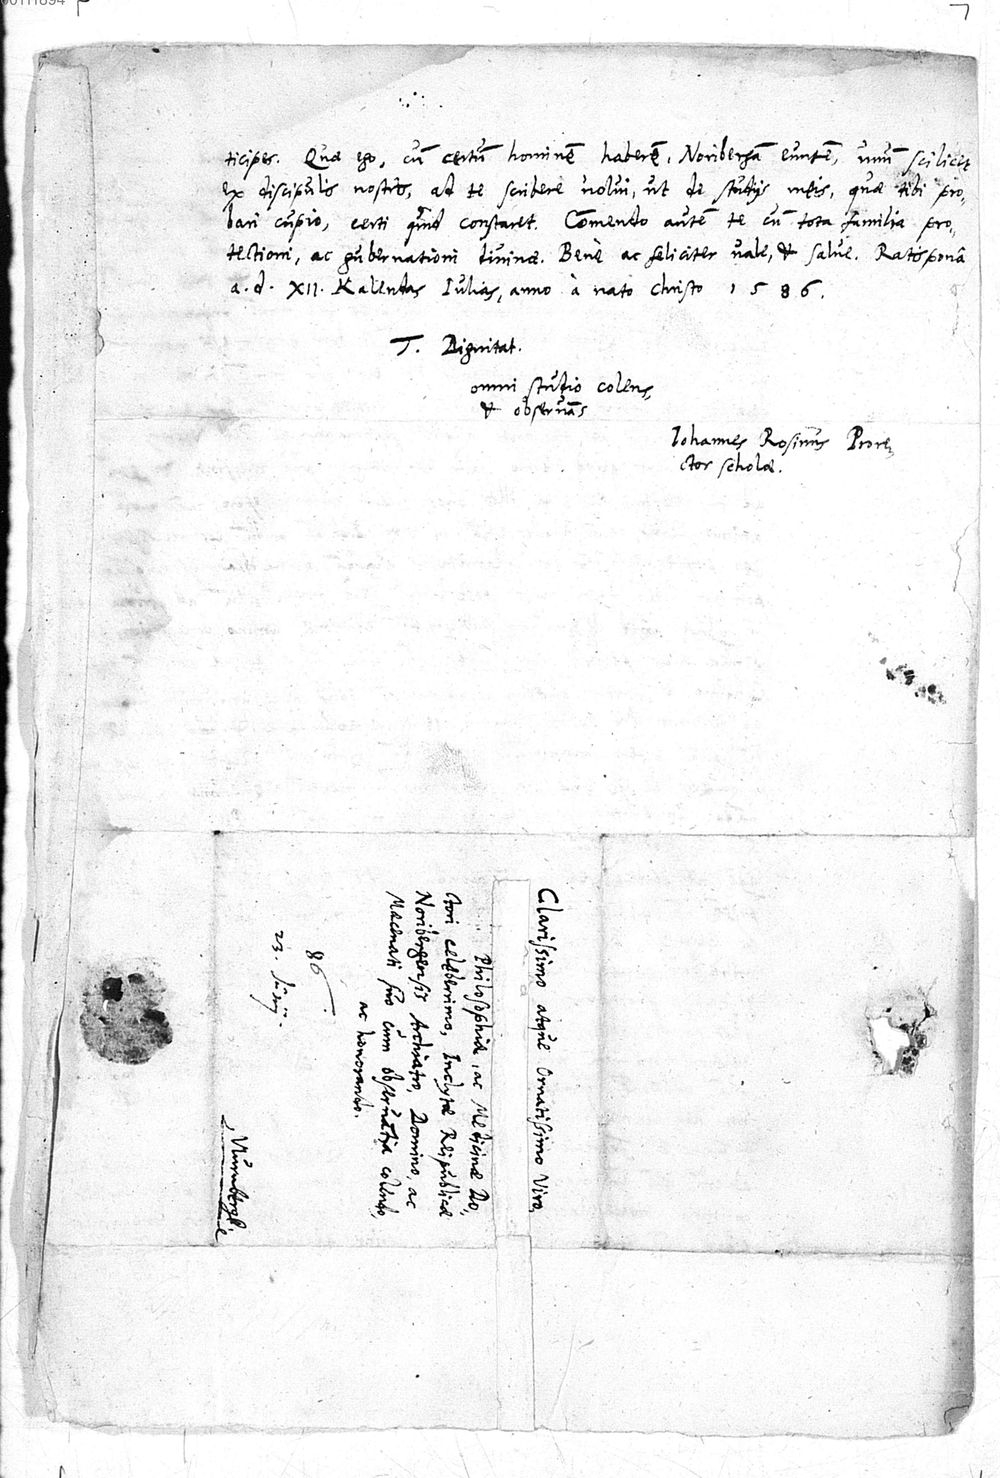 ticipes. Quæ ego, cū certū hominē haberē, Noribergā euntē, unū scilicet
ex discipulis nostris, ad te scribere uolui, ut de studijs meis, quæ tibi pro„
bari cupio, certi quid constaret. Cōmendo autē te cū tota familia pro„
tectioni, ac gubernationi diuinæ. Benè ac feliciter uale, & salue. Ratisponā
a. d. XII. Kalendas Iulias, anno à nato Christo 1586.
T. Dignitat.
omni studio colens,
& obseruās
Iohannes Rosinus Prore„
ctor scholæ.
Clarissimo atque Ornatissimo Viro,
Philosophiæ, ac Medicinæ Do„
ctori celeberrimo, Inclytæ Reipublicæ
Noribergensis Archiatro, Domino, ac
Mæcenati suo cum obseruātia colendo,
ac honorando.
86
23. Junij.
Nurnbergk.